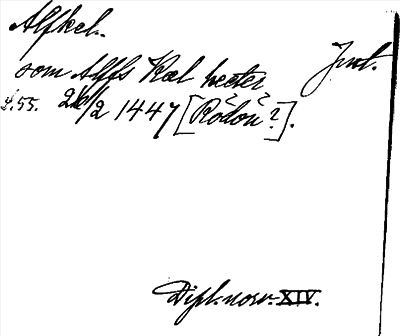 Alfkel.
Jmt.
som Alffs Kæl heeter
s. 55. 26/2 1447 [Rödön?].
Dipl. norv. XIV.